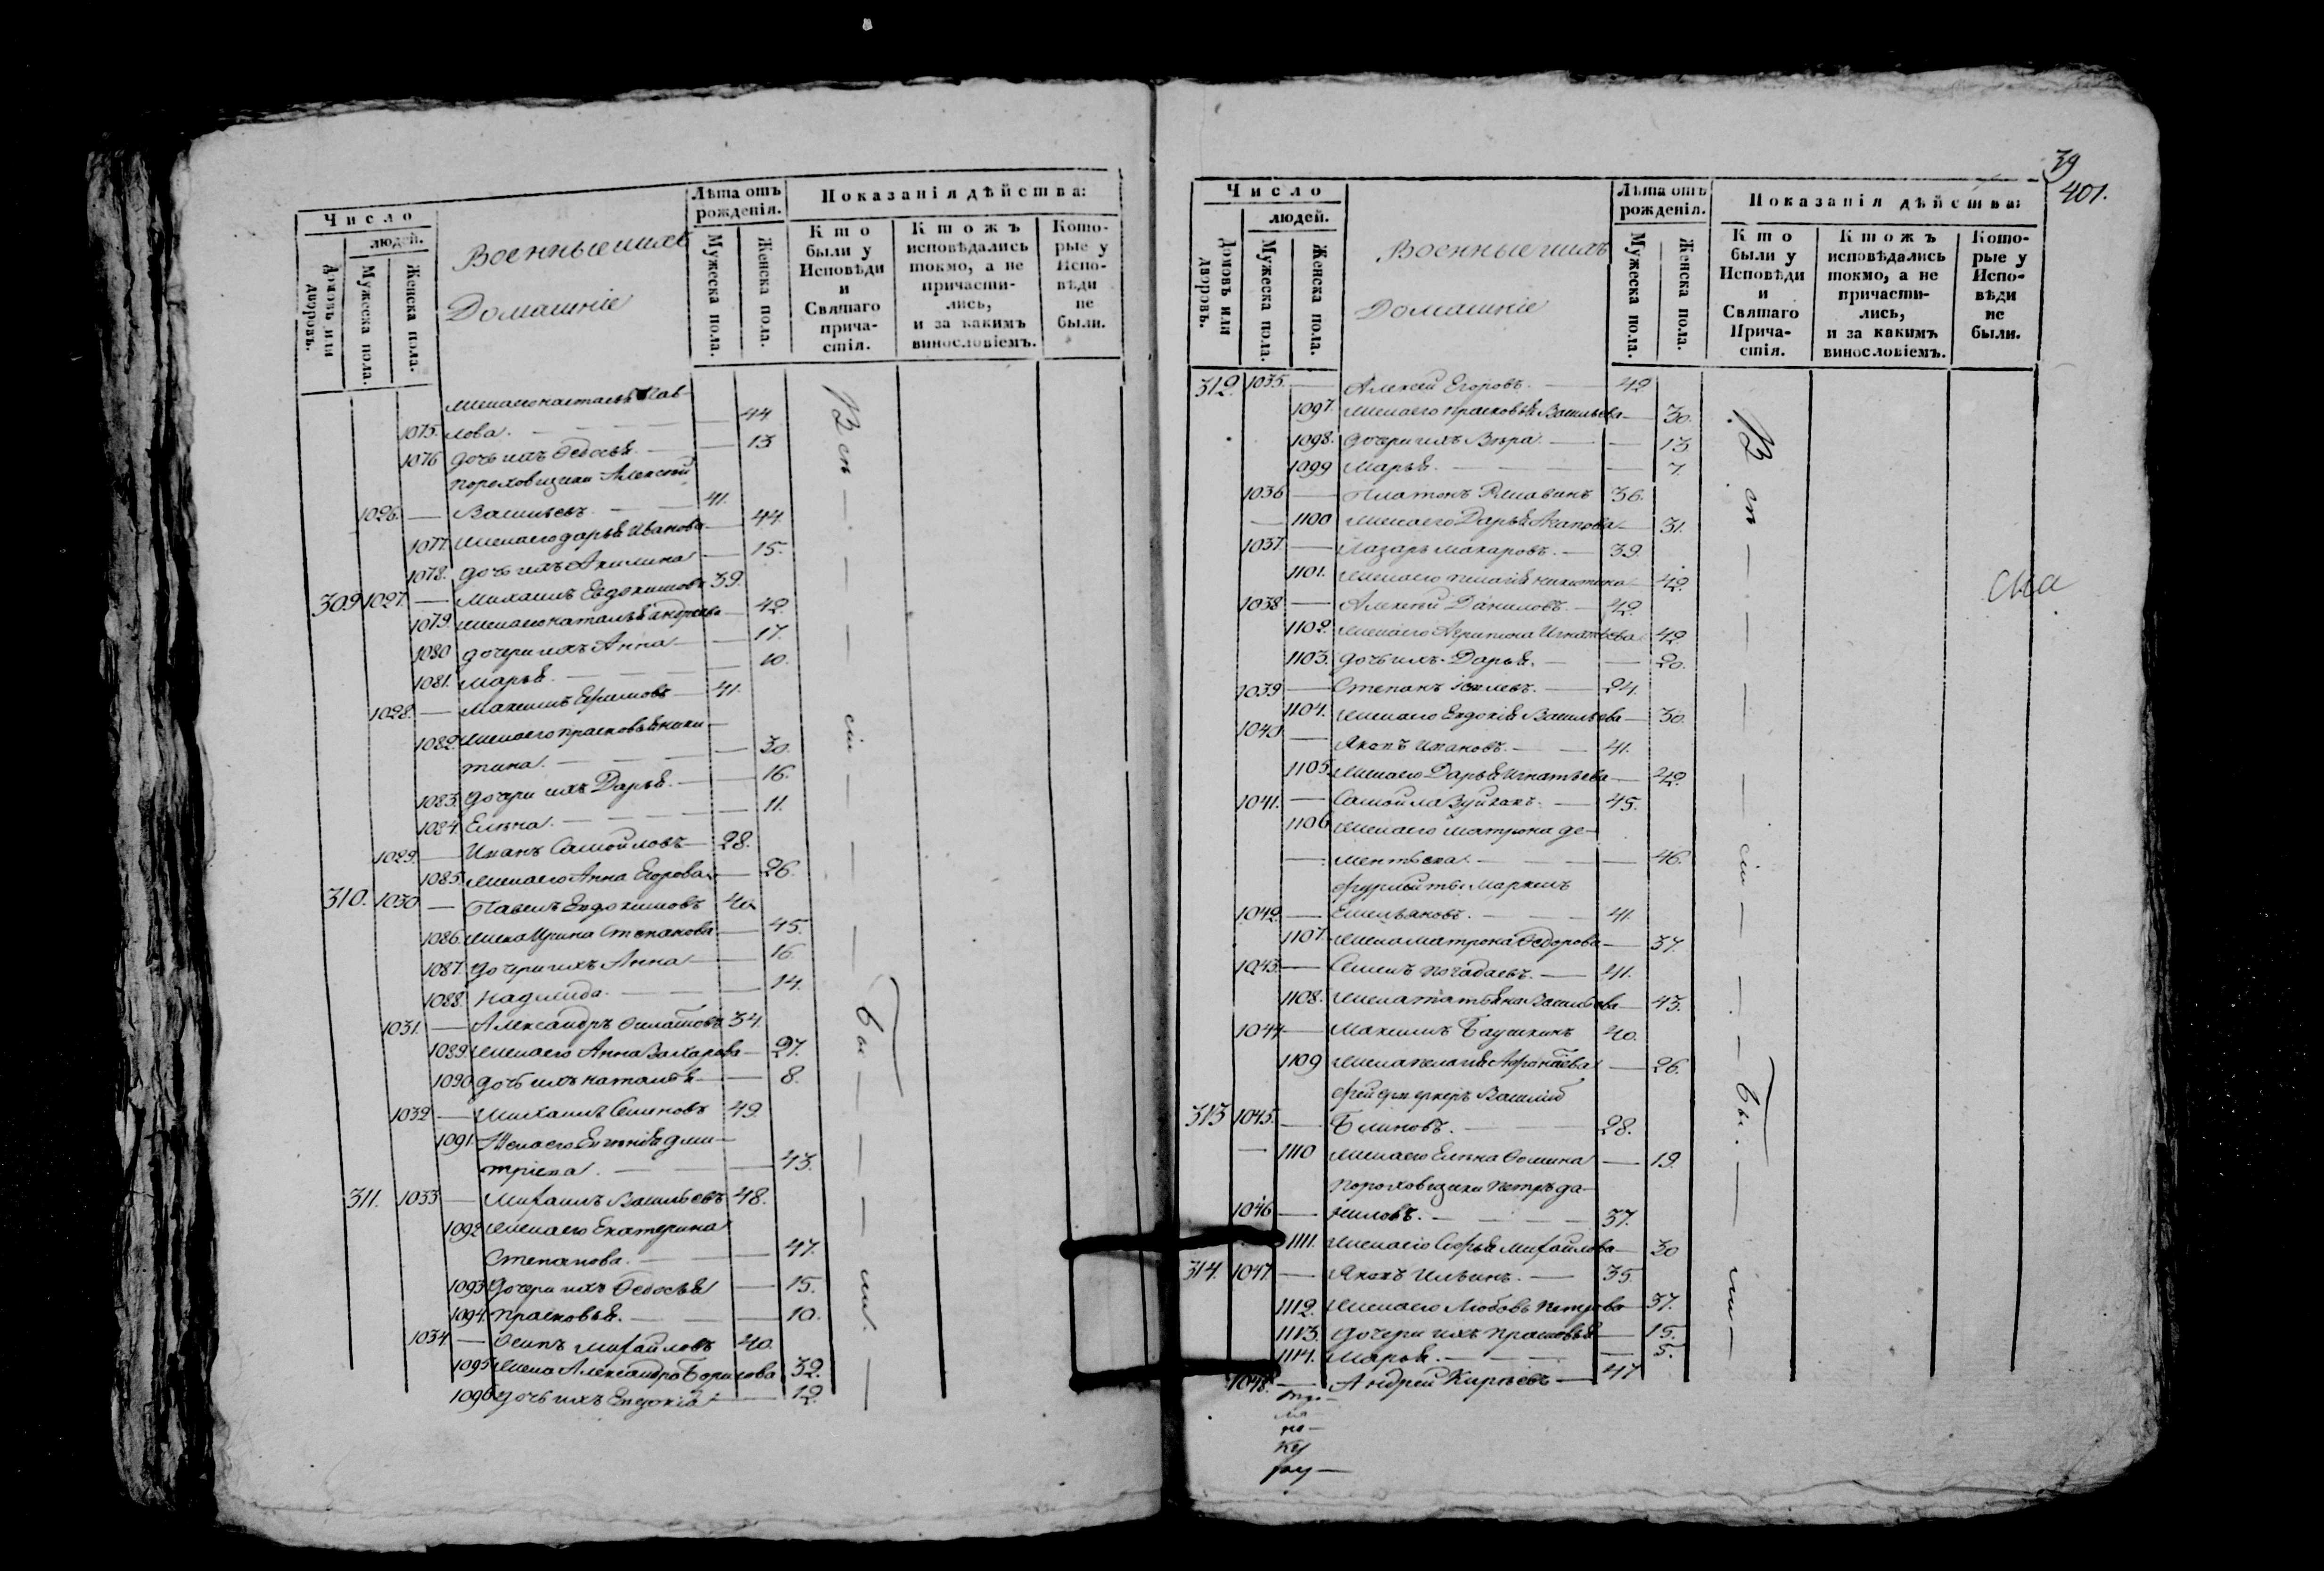 Число
людей.
Домовъ или дворовъ.
Мужеска пола.
Женска пола.
Военные ихъ
Домашніе
Лѣта отъ рожденія.
Мужеска пола.
Женска пола.
Показанія дѣйства:
Кто были у Исповѣди и Святаго причастія.
Кто жъ исповѣдались токмо, а не причастились, и за какимъ винословіемъ.
Которые у Исповѣди не были.
жена его наталья Пав-
1075. лова. — 44
1076 дочь ихъ Ѳедосья. — 13
пороховщики Алексей
1026. — Васильевъ. — 41.
1077. жена его дарья Иванова — 44
1078. дочь ихъ Акилина — 15.
309 1027. — Михаилъ Евдокимовъ 39.
1079. жена его наталья андреева — 42.
1080 дочери ихъ Анна — 17.
1081. марья. — 10.
1028. — Максимъ Ефимовъ — 41.
1082. жена его прасковья ники-
тина. — 30.
1083. дочери ихъ Дарья. — 16.
1084. Елена. — 11.
1029. — Иванъ Самойловъ — 28.
1085. жена его Анна Егорова — 26.
310. 1030 — Павелъ Евдокимовъ 40
1086. жена Ирина Степанова — 45.
1087. дочери ихъ Анна — 16.
1088. надежда. — 14.
1031. — Александръ Филатовъ 34.
1089. жена его Анна Захарова — 27.
1090. дочь ихъ наталья — 8.
1032 — Михаилъ Семеновъ 49.
1091. Жена его Евгенія дми-
тріева. — 43.
311. 1033 — Михаилъ Васильевъ 48.
1092. жена его Екатерина
Степанова. — 47.
1093. дочери ихъ Ѳедосья — 15.
1094. прасковья. — 10.
1034 — Осипъ михайловъ 40.
1095. жена Александра Борисова 32.
1096. дочь ихъ Евдокія — 12.
Всѣ — сіи — бы — ли. —
39
401.
Число
людей.
Домовъ или дворовъ.
Мужеска пола.
Женска пола.
Военные ихъ
Домашніе
Лѣта отъ рожденія.
Мужеска пола.
Женска пола.
Показанія дѣйства:
Кто были у Исповѣди и Святаго Причастія.
Кто жъ исповѣдались токмо, а не причастились, и за какимъ винословіемъ.
Которые у Исповѣди не были.
312. 1035. — Алексей Егоровъ. — 42
1097. жена его прасковья Васильева — 30.
1098. дочери ихъ Вѣра — 13
1099 марья. — 7.
1036 — Платонъ 36.
1100 жена его Дарья — 31.
1037 — Лазарь макаровъ. — 39
1101. жена его пелагія никитина — 42.
1038 — Алексей Даниловъ. — 42.
1102. жена его Агрипина Игнатьева 42
1103. дочь ихъ Дарья. — 20.
1039 — Степанъ — 24.
1104. жена его Евдокія Васильева — 30.
1040 — Яковъ Ивановъ. — 41.
1105. жена его Дарья Игнатьева — 42.
1041. — Самойла — 45.
1106 жена его матрона де-
ментьева. — 46.
маркелъ
1042. — Емельяновъ. — 41.
1107. жена матрона Ѳедорова — 37.
1043. — Семенъ погадаевъ. — 41.
1108. жена татьяна Васильева — 43.
1044 — Максимъ Баушкинъ 40.
1109 жена пелагія — 26.
фейерверкеръ Василій
313 1045. — Блиновъ. — 28.
1110 жена его Елена Ѳомина — 19.
пороховщики петръ да-
1046 — ниловъ. — 37.
1111. жена его Софья михайлова — 30
314. 1047. — Яковъ Ильинъ. — 35.
1112. жена его Любовь петрова — 37.
1113. дочери ихъ прасковья — 15.
1114. марья. — 5.
1048. — Андрей Киреевъ — 47
Всѣ — сіи — бы. — ли —